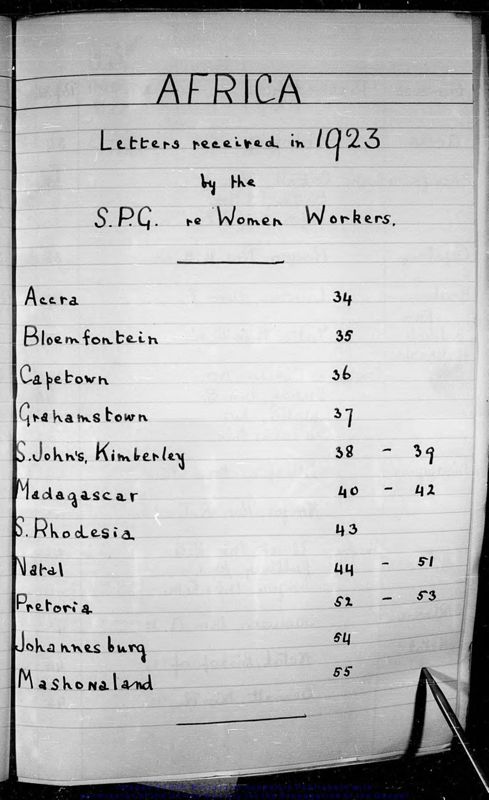 AFRICA
Letters received in 1923
by the
S.P.G. re Women Workers.
Accra 34
Bloemfontein 35
Capetown 36
Grahamstown 37
S.John's, Kimberley 38 - 39
Madagascar 40 - 42
S. Rhodesia 43
Natal 44 - 51
Pretoria 52 - 53
Johannesburg 54
Mashonaland 55